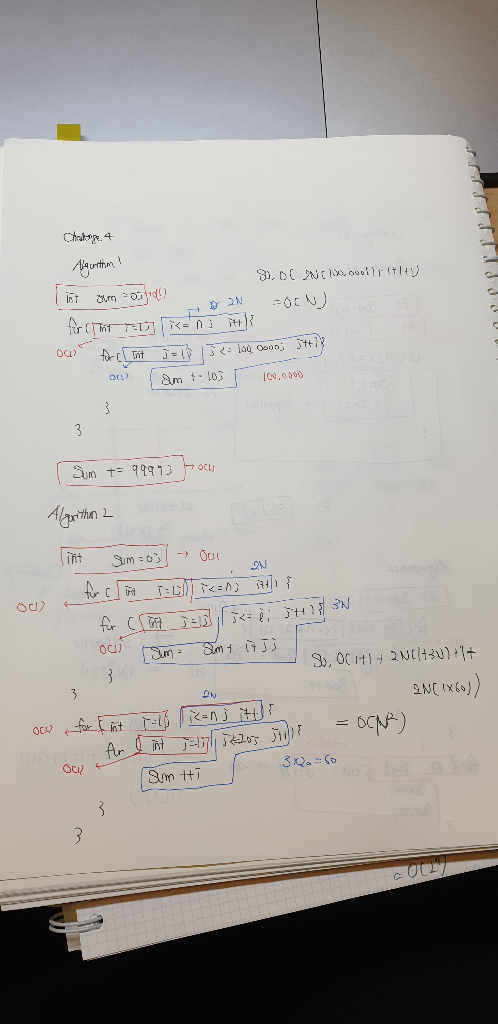 Challenge 4
Algorithm 1
So, O( 2N(100,0001)+1+1+1)
= O(N)
int sum = 0; → O(1)
2N
for ( int i=1; i<= n; i++) {
O(1)
for ( int j=1; j<= 100,0000; j++) {
O(1)
sum += 10;
100,0000
}
}
sum += 9999; → O(1)
Algorithm 2
int sum=0; → O(1)
2N
for ( int i=1; i<=n; i++) {
O(1)
for ( int j=1; j<= i; j++) { 3N
O(1)
sum = sum + i+j;
}
}
So, O(1+1+ 2N(1+3N)+1+
2N(1×60))
= O(N²)
2N
O(1)
for ( int i=1; i<=n; i++) {
for ( int j=1; j<=20; j++) {
O(1)
3×20=60
sum ++;
}
}